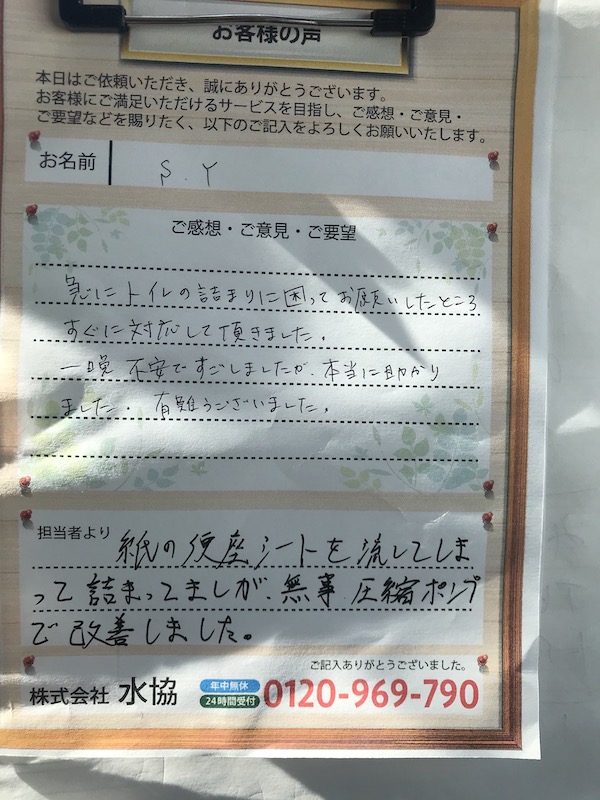 お客様の声
本日はご依頼いただき、誠にありがとうございます。
お客様にご満足いただけるサービスを目指し、ご感想・ご意見・
ご要望などを賜りたく、以下のご記入をよろしくお願いいたします。
お名前 S.Y
ご感想・ご意見・ご要望
急にトイレの詰まりに困ってお願いしたところ
すぐに対応して頂きました。
一晩 不安ですごしましたが、本当に助かり
ました. 有難うございました。
担当者より 紙の便座シートを流してしま
って詰まってましが、無事 圧縮ポンプ
で改善しました。
ご記入ありがとうございました。
株式会社 水協 年中無休 24時間受付 0120-969-790